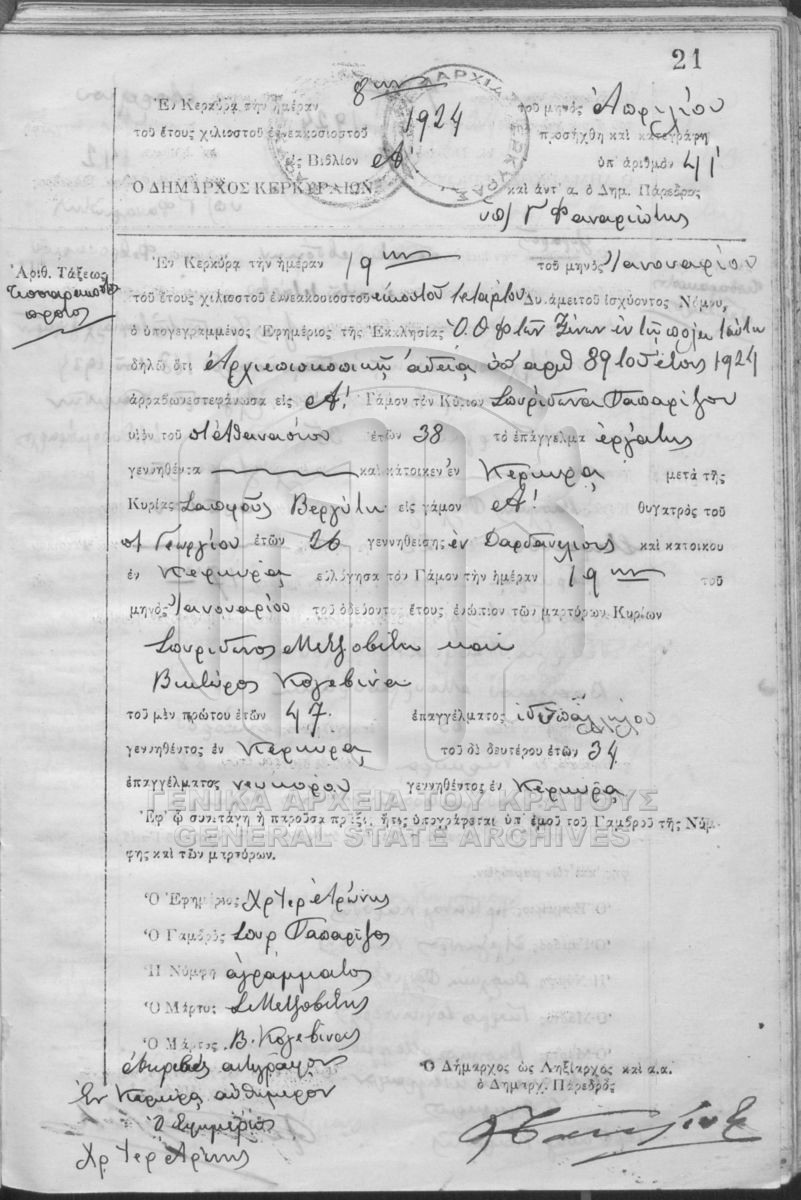 21
Ἐν Κερκύρᾳ τὴν ἡμέραν 8ην τοῦ μηνὸς Ἀπριλίου
τοῦ ἔτους χιλιοστοῦ ἐννεακοσιοστοῦ 1924 προσήχθη καὶ κατεγράφη
εἰς Βιβλίον Α' ὑπ' ἀριθμὸν 41
Ο ΔΗΜΑΡΧΟΣ ΚΕΡΚΥΡΑΙΩΝ καὶ ἀντ' α. ὁ Δημ. Πάρεδρος
ὑπ/ Γ Φαναριώτης
Ἀριθ. Τάξεως
Τεσσαρακοστὸς
πρῶτος
Ἐν Κερκύρᾳ τὴν ἡμέραν 19ην τοῦ μηνὸς Ἰανουαρίου
τοῦ ἔτους χιλιοστοῦ ἐννεακοσιοστοῦ εἰκοστοῦ τετάρτου Δυνάμει τοῦ ἰσχύοντος Νόμου,
ὁ ὑπογεγραμμένος Ἐφημέριος τῆς Ἐκκλησίας Ὁ. Θ τῶν Ξένων ἐν τῇ πόλει ταύτῃ
δηλῶ ὅτι Ἀρχιεπισκοπικῇ ἀδείᾳ ὑπ' ἀριθ 89 τοῦ ἔτους 1924
ἀρραβωνεστεφάνωσα εἰς Α! Γάμον τὸν Κύριον Σπυρίδωνα Παπαρίζον
υἱὸν τοῦ π/ Ἀθανασίου ἐτῶν 38 τὸ ἐπάγγελμα ἐργάτης
γεννηθέντα καὶ κάτοικον ἐν Κερκύρᾳ μετὰ τῆς
Κυρίας Σαπφοῦς Βεργύτη εἰς γάμον Α! θυγατρὸς τοῦ
π/ Γεωργίου ἐτῶν 26 γεννηθείσης ἐν Δαρδανελίοις καὶ κατοικου
ἐν Κερκύρᾳ εὐλόγησα τὸν Γάμον τὴν ἡμέραν 19ην τοῦ
μηνὸς Ἰανουαρίου τοῦ ὁδεύοντος ἔτους ἐνώπιον τῶν μαρτύρων Κυρίων
Σπυρίδωνος Μετζοβίτη καὶ
Βίκτωρος Κογεβίνα
τοῦ μὲν πρώτου ἐτῶν 47 ἐπαγγέλματος ἰδ. ὑπαλλήλου
γεννηθέντος ἐν Κερκύρᾳ τοῦ δὲ δευτέρου ἐτῶν 34
ἐπαγγέλματος νεωκόρου γεννηθέντος ἐν Κερκύρᾳ
ΓΕΝΙΚΑ ΑΡΧΕΙΑ ΤΟΥ ΚΡΑΤΟΥΣ
Ἐφ' ᾧ συνετάγη ἡ παροῦσα πρᾶξις ἥτις ὑπογράφεται ὑπ' ἐμοῦ τοῦ Γαμβροῦ τῆς Νύμ-
GENERAL STATE ARCHIVES
φης καὶ τῶν μαρτύρων.
Ὁ Ἐφημέριος Χρ Ἱερ Ἀρώνης
Ὁ Γαμβρὸς Σπυρ Παπαρίζος
Ἡ Νύμφη ἀγράμματος
Ὁ Μάρτυς Σ. Μετζοβίτης
Ὁ Μάρτυς Β. Κογεβίνας
Ἀκριβὲς ἀντίγραφον
Ἐν Κερκύρᾳ αὐθημερὸν
Ὁ Ἐφημέριος
Χρ Ἱερ Ἀρώνης
Ὁ Δήμαρχος ὡς Ληξίαρχος καὶ α.α.
ὁ Δημαρχ. Πάρεδρος